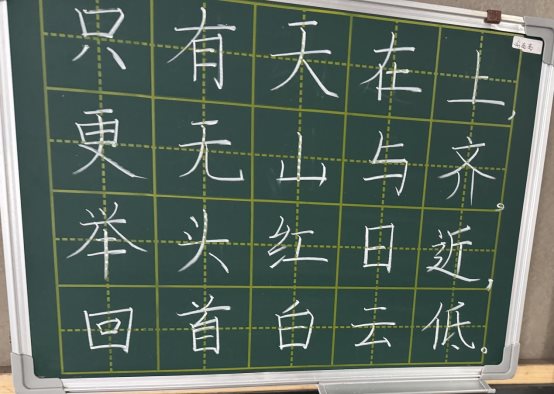 只有天在上，
更无山与齐。
举头红日近，
回首自云低。